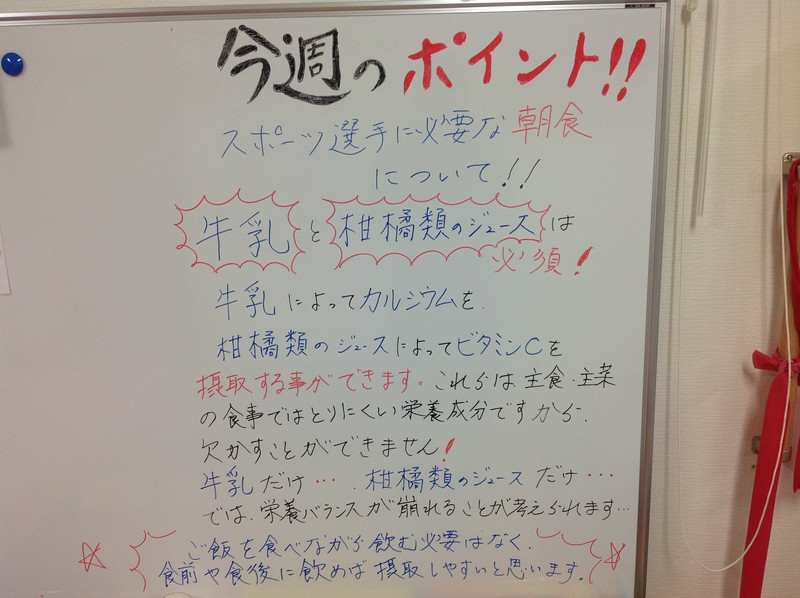 今週のポイント!!
スポーツ選手に必要な朝食
について!!
牛乳と柑橘類のジュースは
必須!
牛乳によってカルシウムを、
柑橘類のジュースによってビタミンCを
摂取する事ができます。これらは主食・主菜
の食事ではとりにくい栄養成分ですから、
欠かすことができません!
牛乳だけ… 、柑橘類のジュースだけ…
では、栄養バランスが崩れることが考えられます…
ご飯を食べながら飲む必要はなく、
食前や食後に飲めば摂取しやすいと思います。